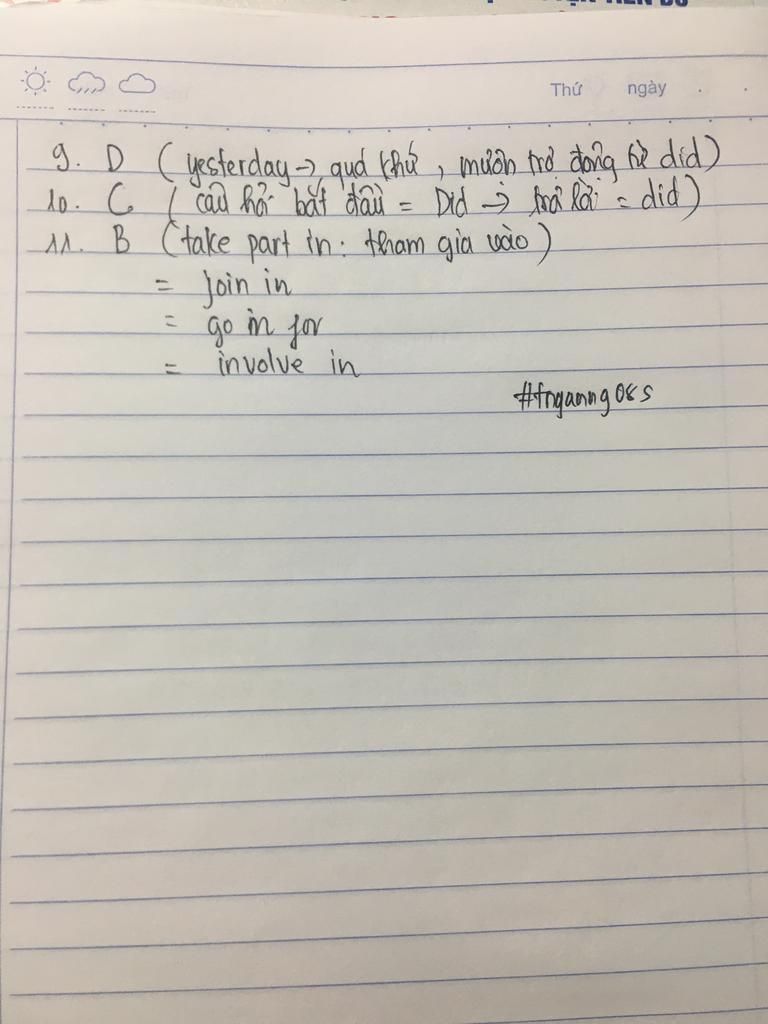 Thứ ngày
9. D (yesterday → quá khứ, mượn trợ động từ did)
10. C (câu hỏi bắt đầu = Did → trả lời = did)
11. B (take part in: tham gia vào)
= join in
= go in for
= involve in